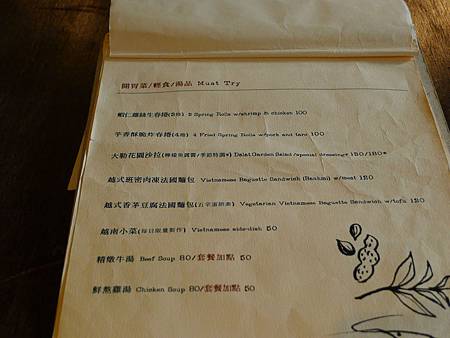 開胃菜/輕食/湯品 Must Try
蝦仁雞絲生春捲(2捲) 2 Spring Rolls w/shrimp & chicken 100
芋香酥脆炸春捲(4捲) 4 Fried Spring Rolls w/pork and taro 100
大勒花園沙拉(檸檬魚露醬/季節特調*) Dalat Garden Salad /special dressing* 150/180*
越式班密肉凍法國麵包 Vietnamese Baguette Sandwich (Banhmi) w/meat 120
越式香茅豆腐法國麵包(五辛蛋奶素) Vegetarian Vietnamese Baguette Sandwich w/tofu 120
越南小菜(每日限量製作) Vietnamese side-dish 50
精燉牛湯 Beef Soup 80/套餐加點 50
鮮熬雞湯 Chicken Soup 80/套餐加點 50